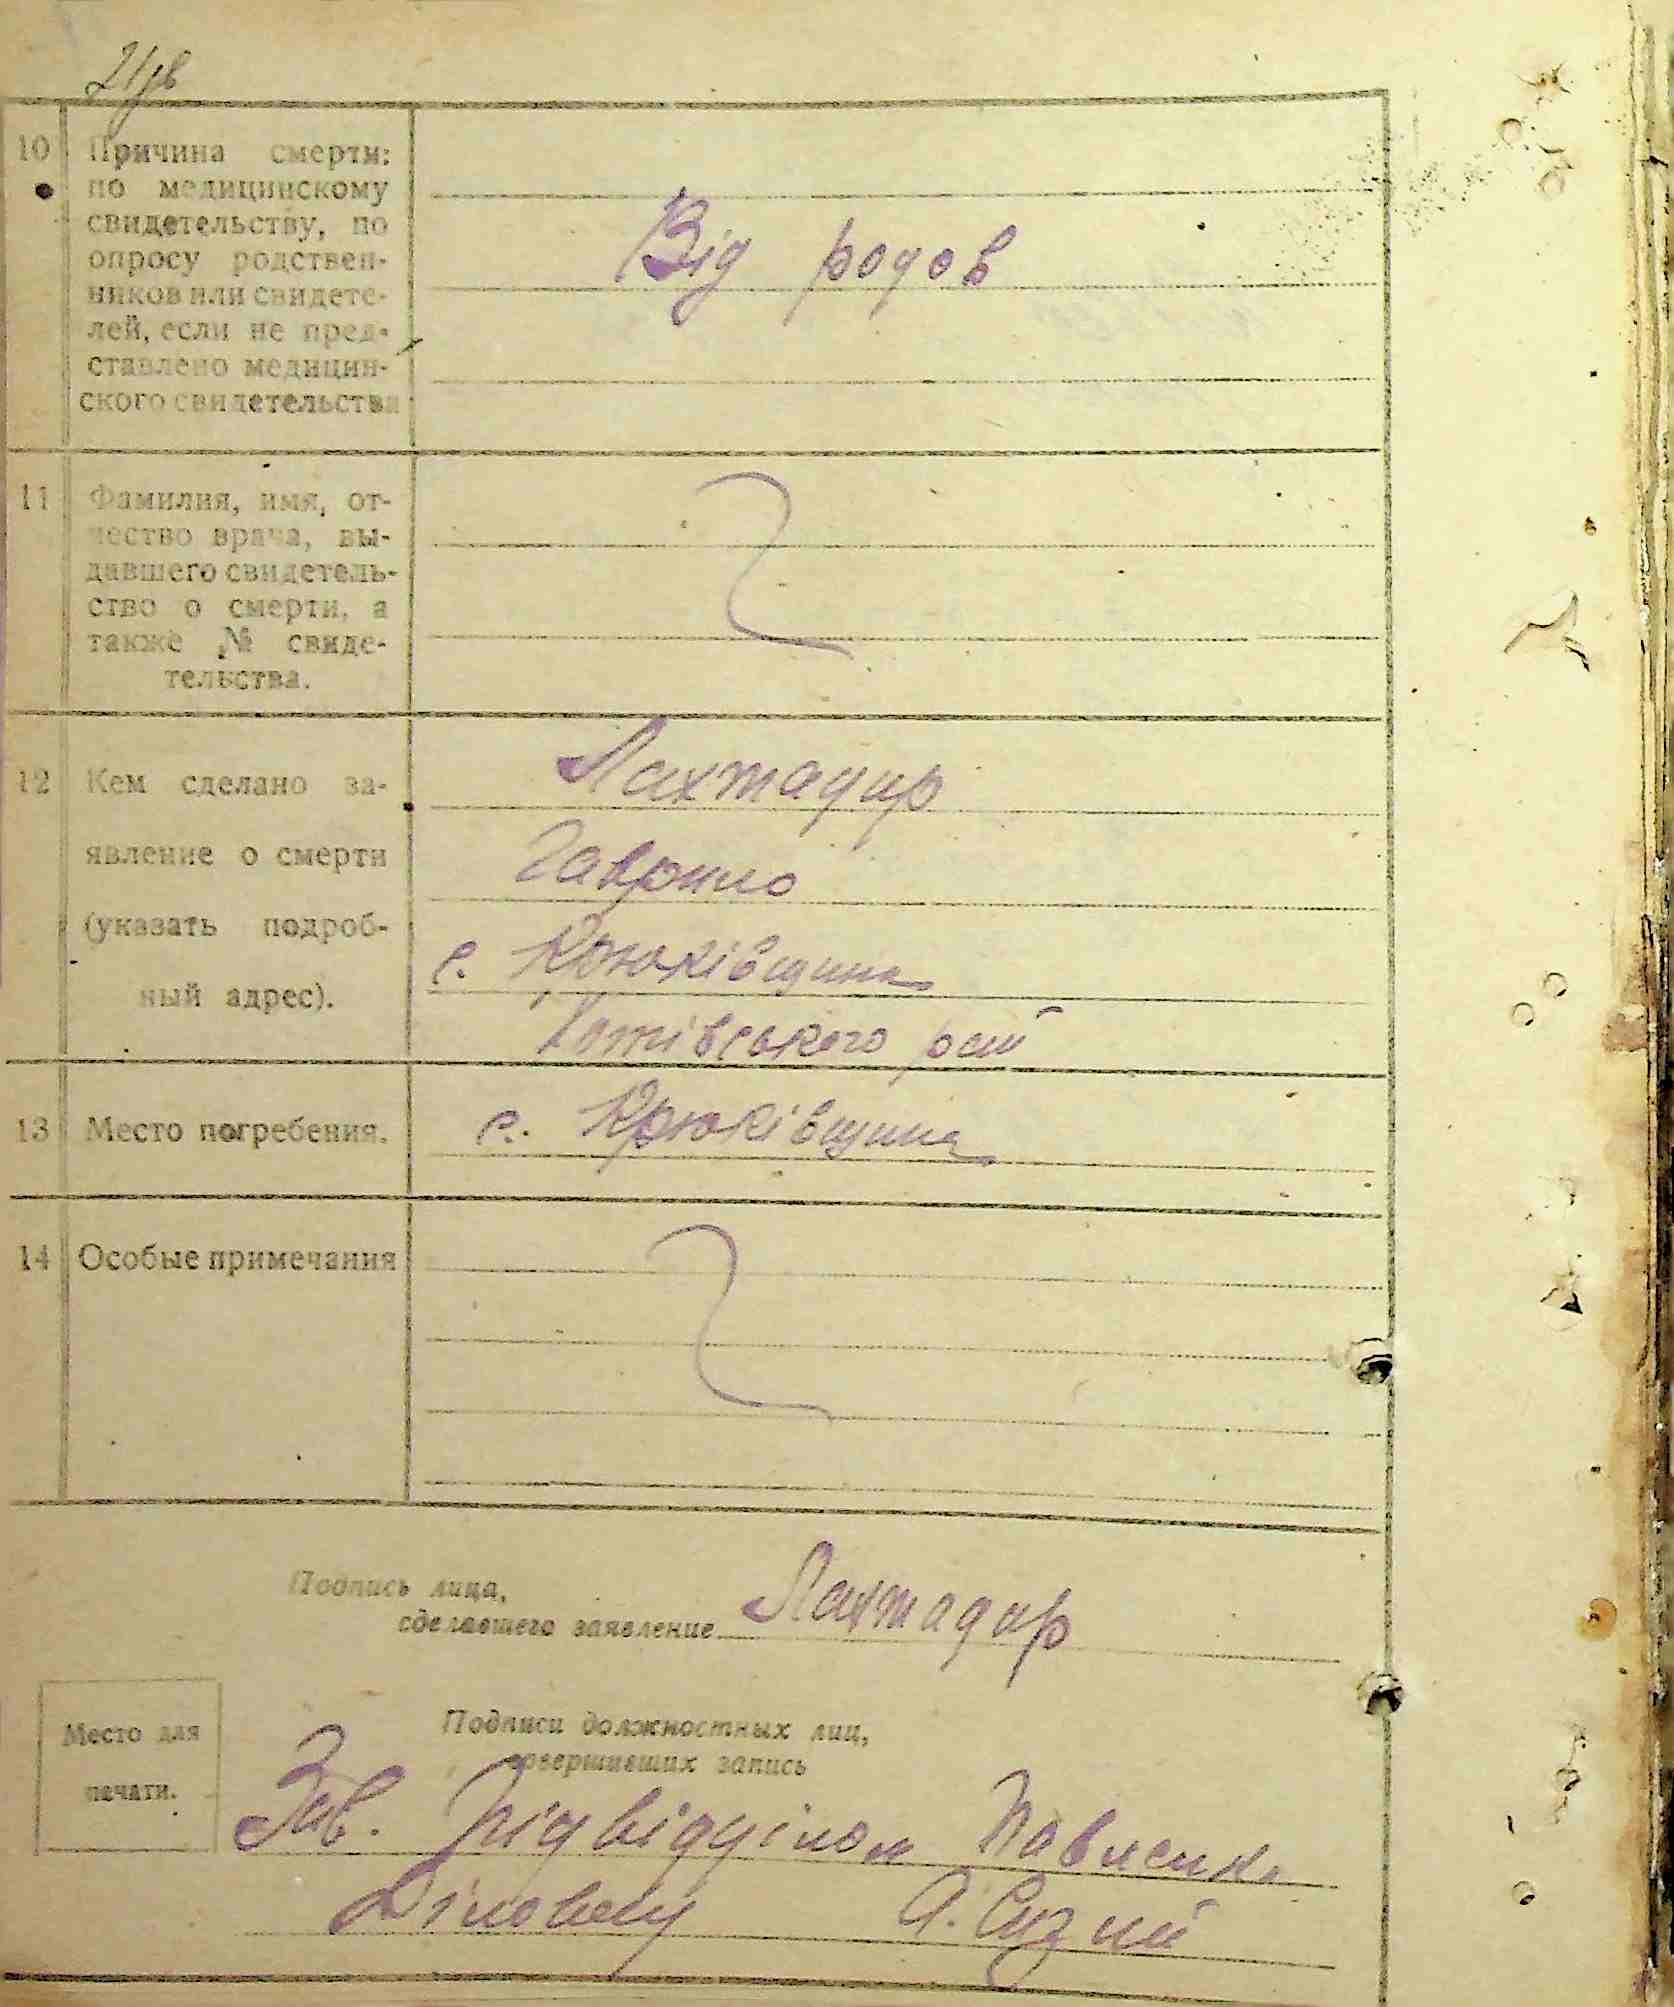 21зв
10 Причина смерти:
по медицинскому
свидетельству, по
опросу родствен-
ников или свидете-
лей, если не пред-
ставлено медицин-
ского свидетельства
Від родов
11 Фамилия, имя, от-
чество врача, вы-
давшего свидетель-
ство о смерти, а
также № свиде-
тельства.
12 Кем сделано за-
явление о смерти
(указать подроб-
ный адрес).
Лахтадир
Гаврило
с. Крюківщина
Хотівського рай
13 Место погребения.
с. Крюківщина
14 Особые примечания
Подпись лица,
сделавшего заявление Лахтадир
Место для
печати.
Подписи должностных лиц,
совершивших запись
Зав. Підвідділом Павленко
Діловод